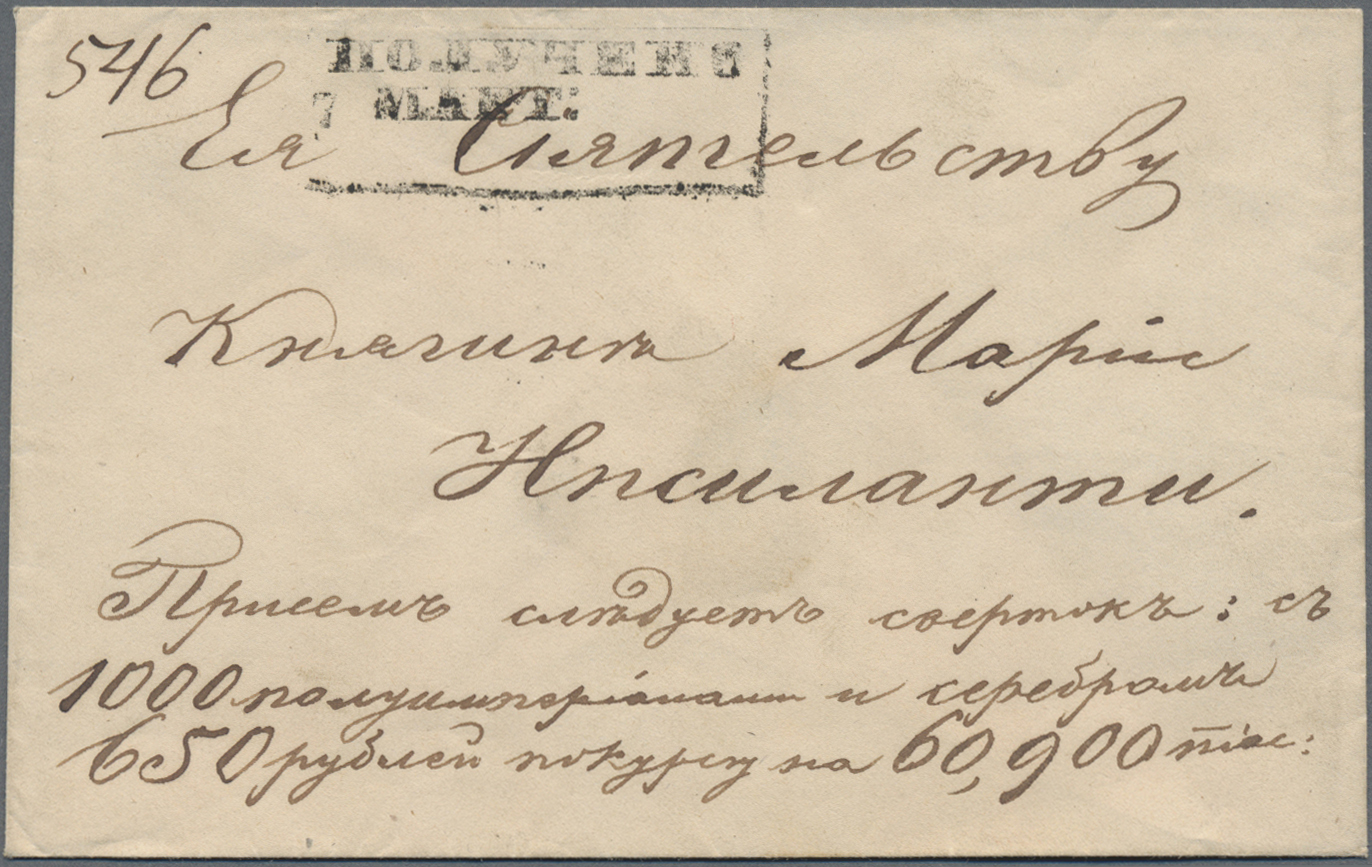 546
ПОЛУЧЕНЪ
7 МАРТ:
Ея Сіятельству
Княгинѣ Маріи
Ипсиланти.
Присемъ слѣдуетъ свертокъ: съ
1000 полуимперіалами и серебромъ
650 рублей по курсу на 60,900 піас: